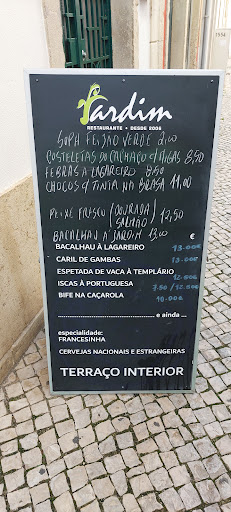 Jardim
RESTAURANTE • DESDE 2006
SOPA FEIJÃO VERDE 2,00
COSTELETAS DO CACHAÇO C/ MIGAS 8,50
FEBRAS À LAGAREIRO 8,50
CHOCOS C/ TINTA NA BRASA 11,00
PEIXE FRESCO (DOURADA / SALMÃO) 12,50
BACALHAU À JARDIM 13,00
€
BACALHAU À LAGAREIRO 13.00€
CARIL DE GAMBAS 13.00€
ESPETADA DE VACA À TEMPLÁRIO 12.50€
ISCAS À PORTUGUESA 7.50 / 12.50€
BIFE NA CAÇAROLA 10.00€
e ainda ...
especialidade:
FRANCESINHA
CERVEJAS NACIONAIS E ESTRANGEIRAS
TERRAÇO INTERIOR